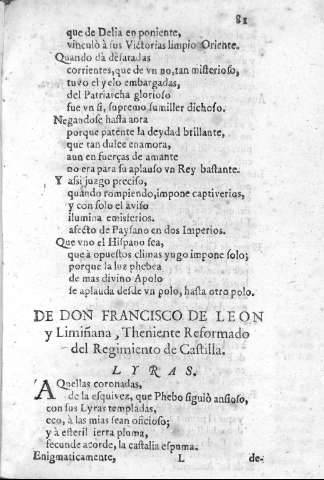 81
que de Delia en poniente,
vinculò à sus Victorias limpio Oriente.
Quando dà desatadas
corrientes, que de vn no, tan misterioso,
tuvo el yelo embargadas,
del Patriarcha glorioso
fue vn si, supremo sumiller dichoso.
Negandose hasta aora
porque patente la deydad brillante,
que tan dulce enamora,
aun en fuerças de amante
no era para su aplauso vn Rey bastante.
Y assi juzgo preciso,
quando rompiendo, impone captiverios,
y con solo el aviso
ilumina emisferios.
afecto de Paysano en dos Imperios.
Que vno el Hispano sea,
que à opuestos climas yugo impone solo;
porque la luz phebea
de mas divino Apolo
se aplauda desde vn polo, hasta otro polo.
DE DON FRANCISCO DE LEON
y Limiñana, Theniente Reformado
del Regimiento de Castilla.
LYRAS.
AQuellas coronadas,
de la esquivez, que Phebo siguiò ansioso,
con sus Lyras templadas,
eco, à las mias sean oficioso;
y à esteril ierra pluma,
fecunde acorde, la castalia espuma.
Enigmaticamente, L de-